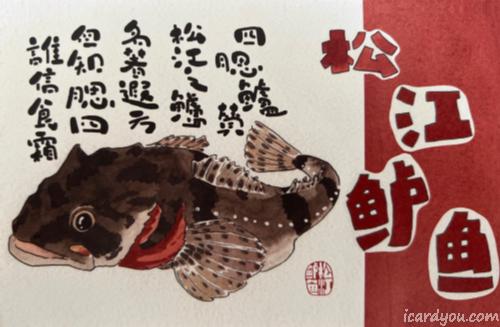 四腮鱸贊
松江之鱸
名著遐方
知腮四
誰信食霜
松江鲈鱼
icardyou.com